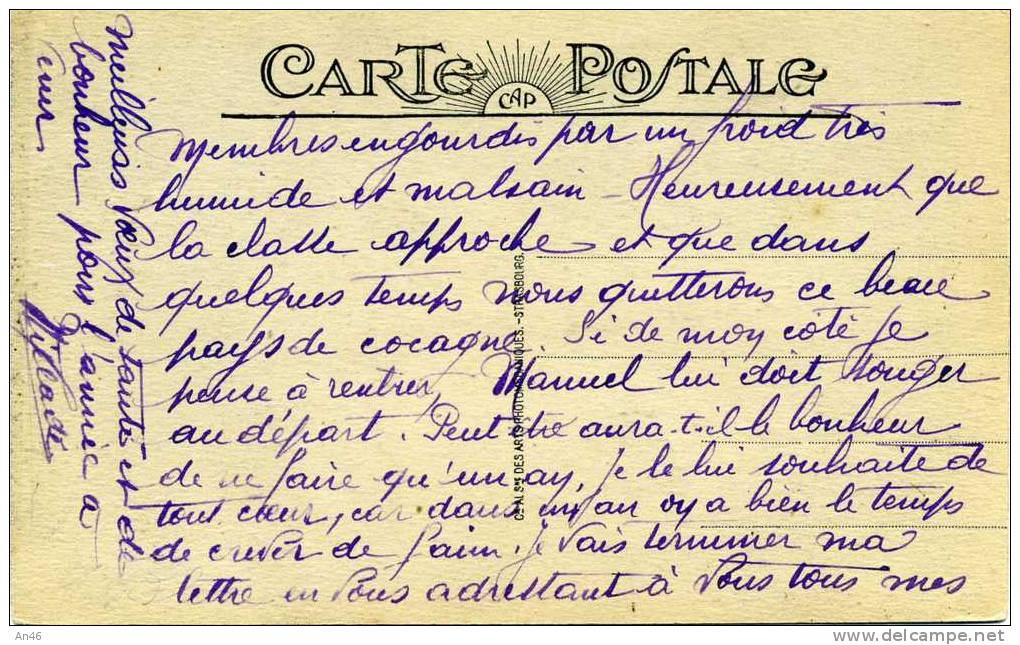 CARTE POSTALE
CAP
Membres engourdis par un froid très
humide et malsain - Heureusement que
la classe approche et que dans
quelques temps nous quitterons ce beau
pays de cocagne. Si de mon côté je
pense à rentrer, Manuel lui doit songer
au départ. Peut être aura-t-il le bonheur
de ne faire qu'un an, je le lui souhaite de
tout cœur, car dans un an on y a bien le temps
de crever de faim. Je vais terminer ma
lettre en vous adressant à vous tous mes
meilleurs vœux de santé et de
bonheur pour l'année à
venir
Cie ALSne DES ARTS PHOTOMÉCANIQUES. - STRASBOURG.
An46
www.delcampe.net